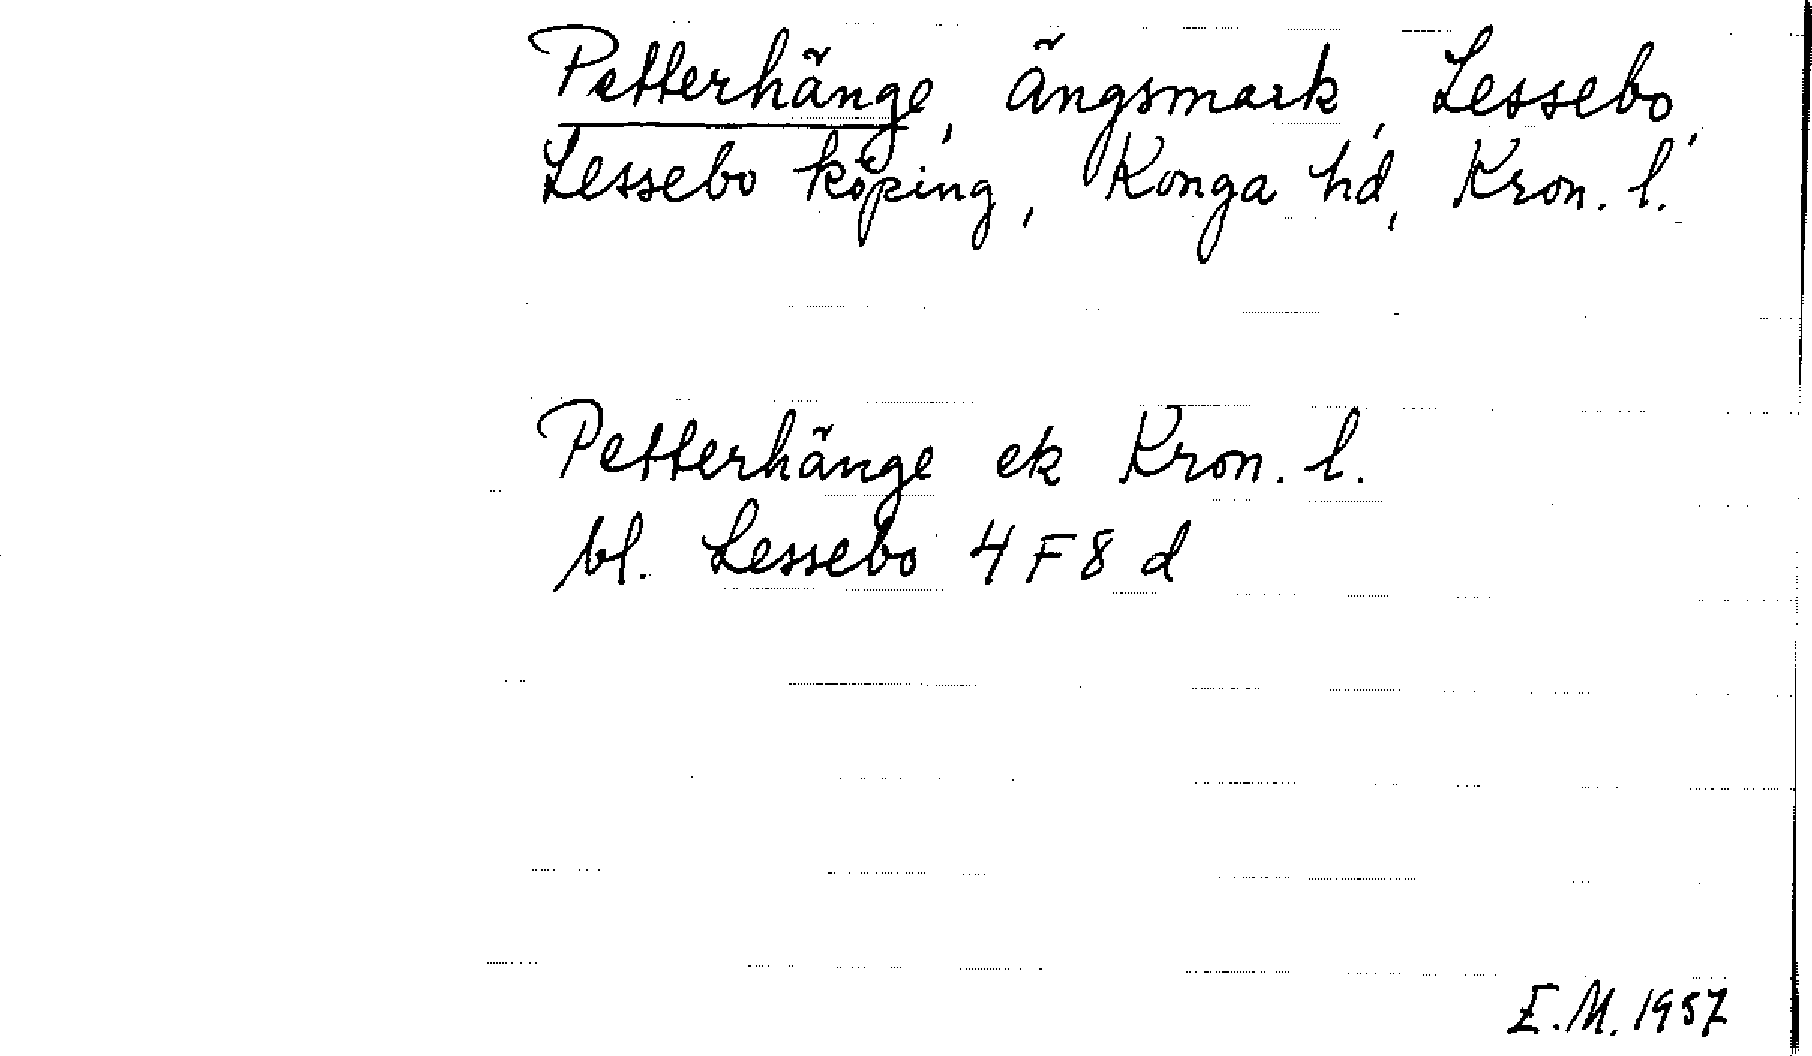 Petterhänge, ängsmark, Lessebo,
Lessebo köping, Konga hd, Kron. l.
Petterhänge ek Kron. l.
bl. Lessebo 4 F 8 d
E.M. 1957